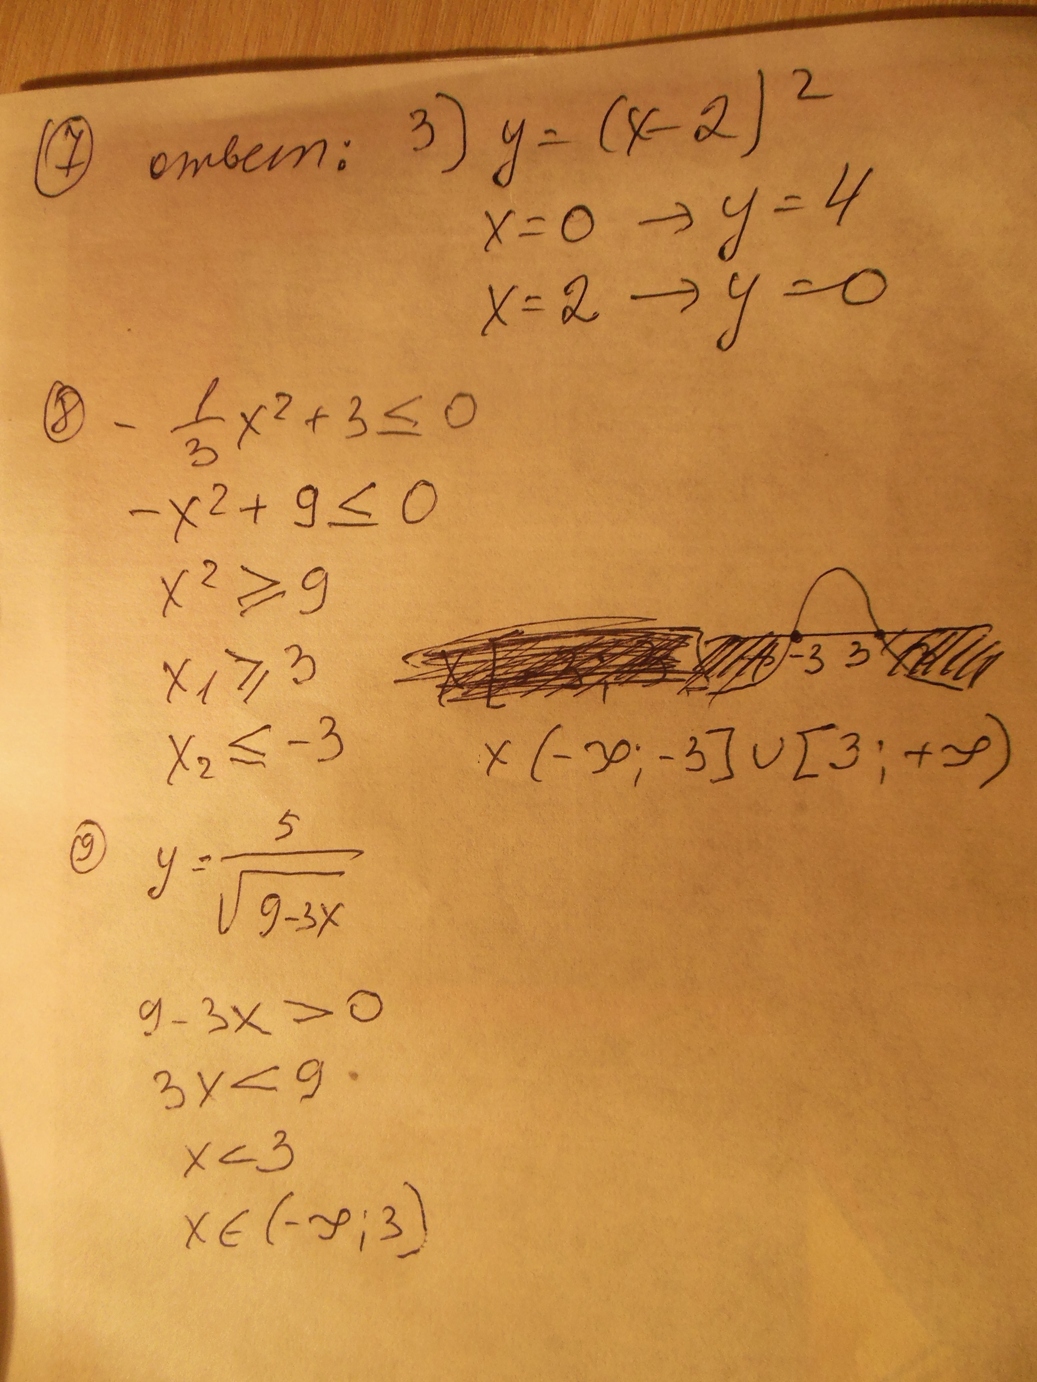 (7) ответ: 3) y = (x-2)²
x=0 → y=4
x=2 → y=0
(8) - 1/3 x² + 3 ≤ 0
-x² + 9 ≤ 0
x² ≥ 9
x₁ ≥ 3
-3 3
x₂ ≤ -3
x (-∞; -3] ∪ [3; +∞)
(9) y = 5/√(9-3x)
9-3x > 0
3x < 9
x < 3
x ∈ (-∞; 3)